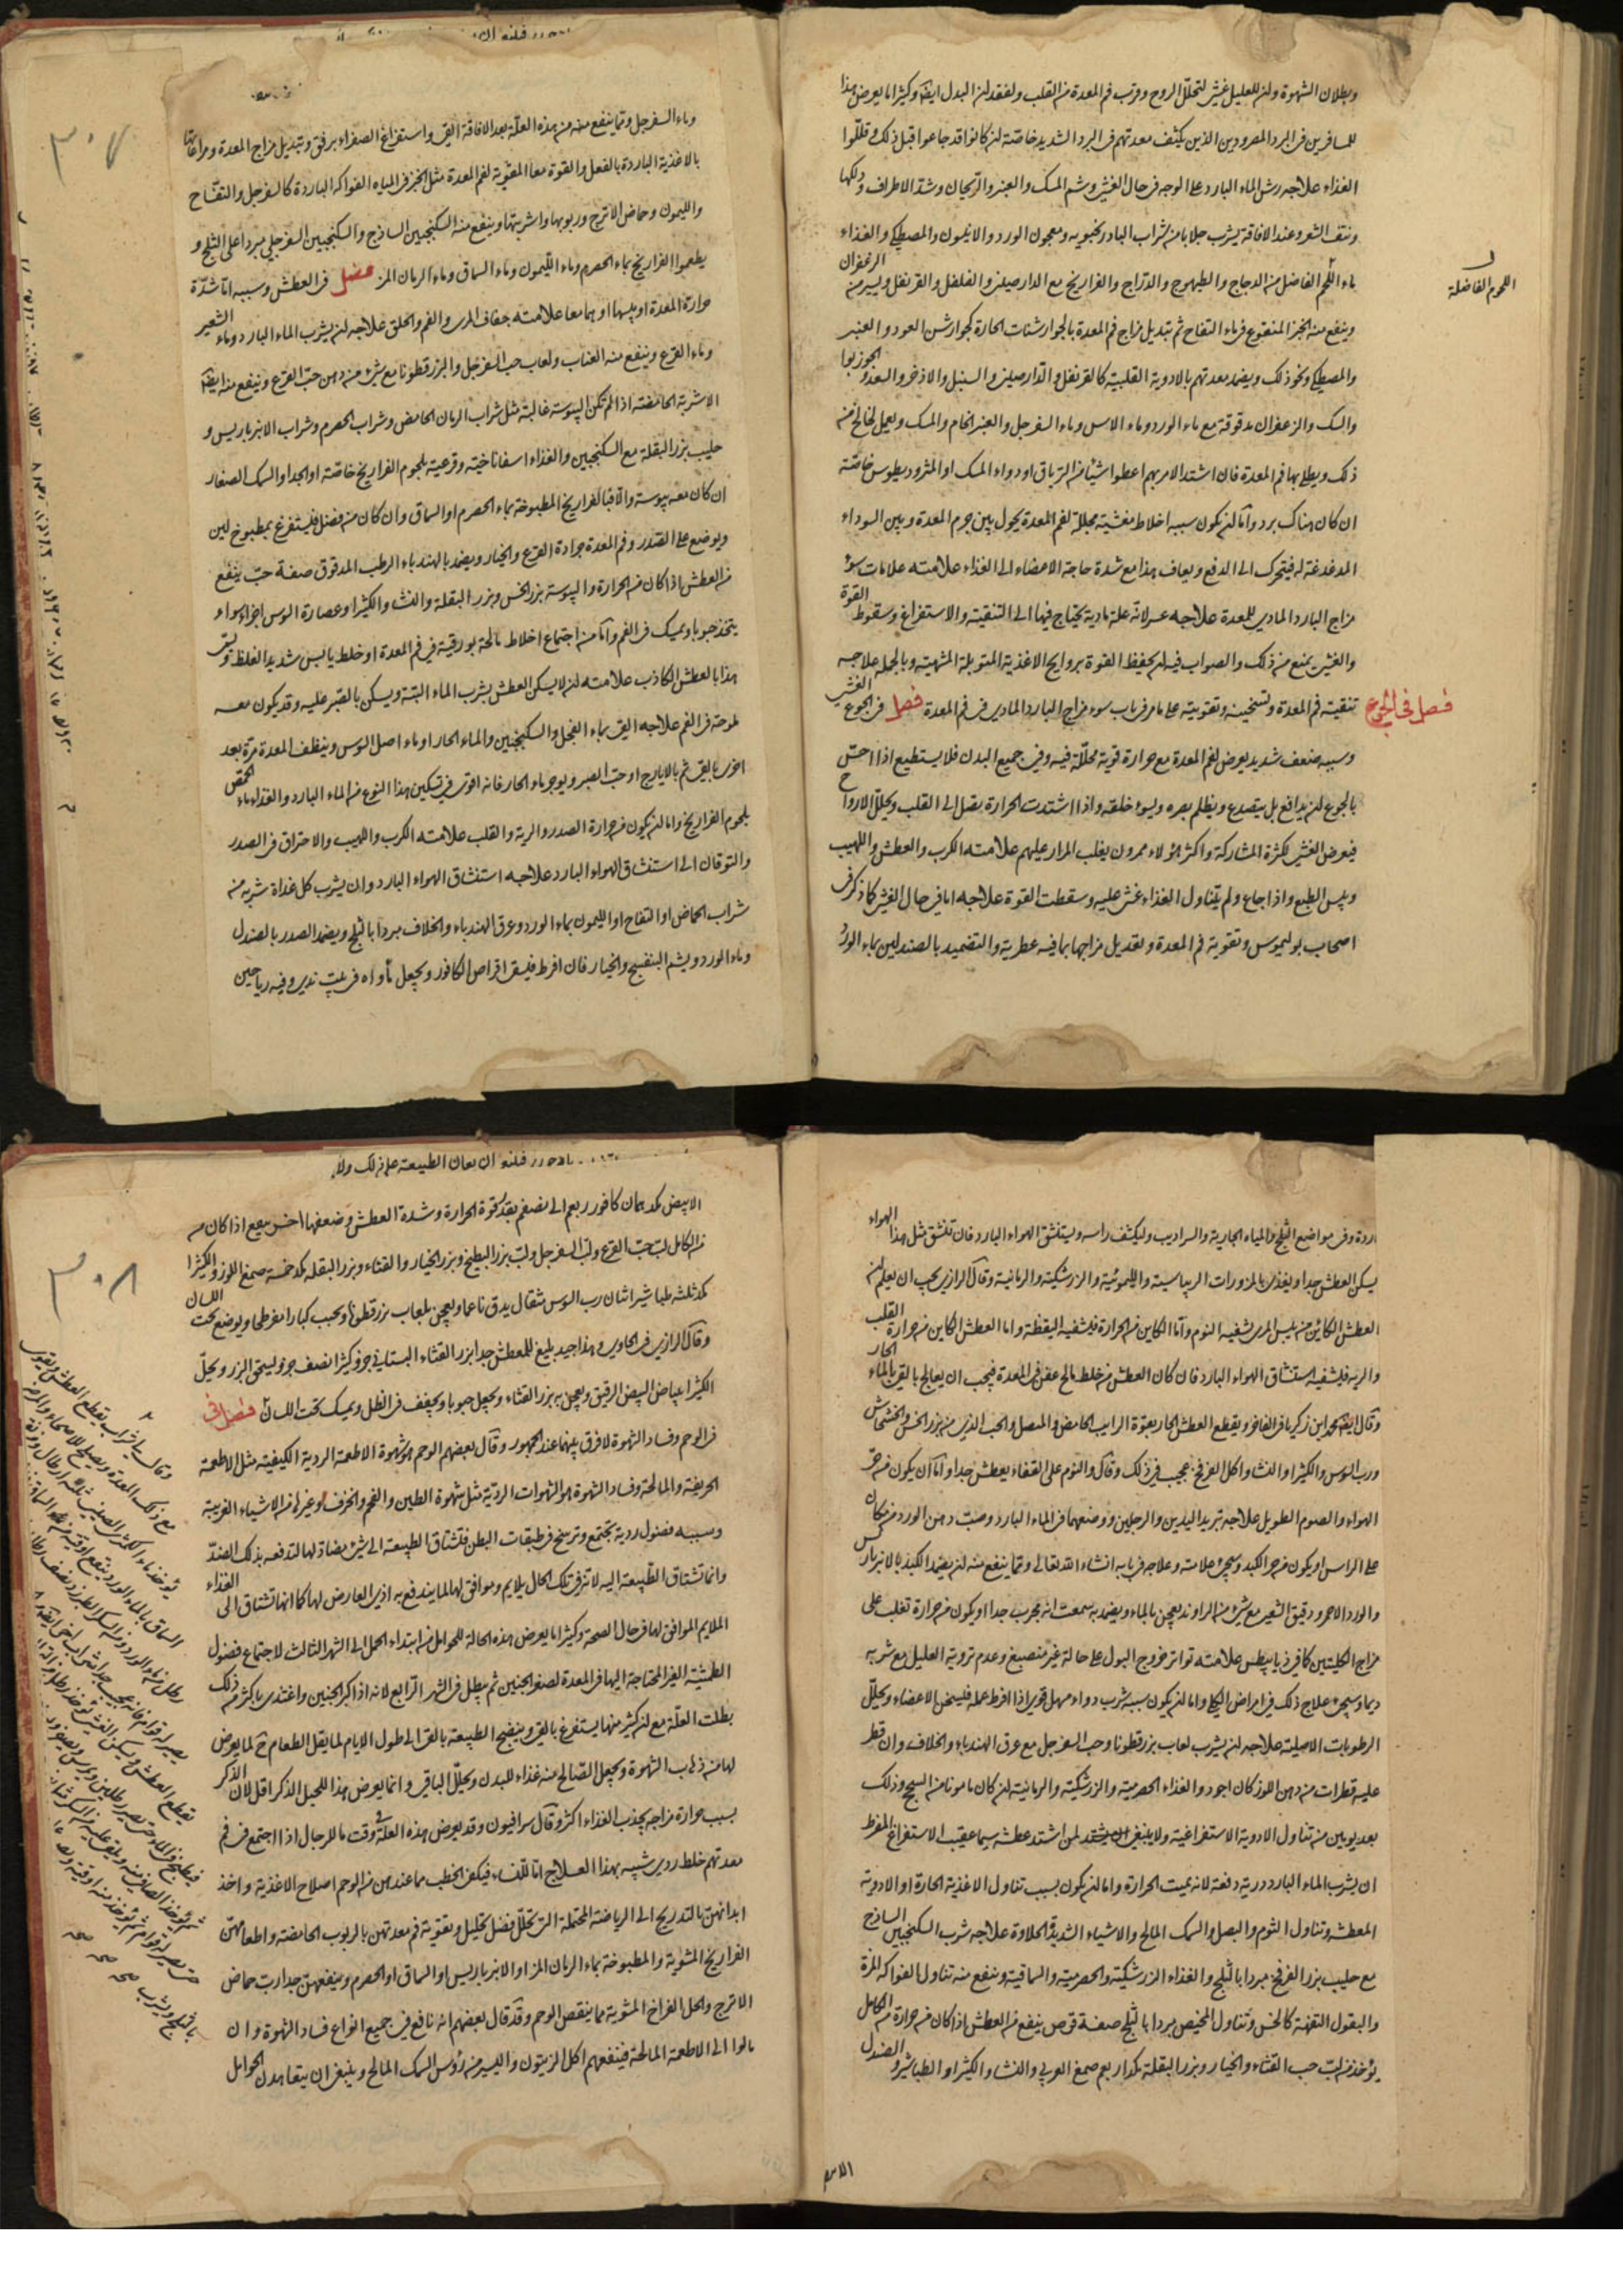 وبطلان الشهوة وان للعليل غشى لتحلل الروح وقرب فم المعدة من القلب ولفقد ان البدل ايضا وكثيرا ما يعرض هذا
للمسافرين فى البرد المصرودين الذين يكثف معدتهم فى البرد الشديد خاصة ان كانوا قد جاعوا قبل ذلك وقللوا
الغذاء علاجه رش الماء البارد على الوجه فى حال الغشى وشم المسك والعنبر والريحان وشد الاطراف ودلكها
ونتف الشعر وعند الافاقة يشرب جلابا من شراب البادرنجبويه ومعجون الورد والانيسون والمصطكى والغذاء
ماء اللحم الفاضل من الدجاج والطيهوج والدراج والفراريخ مع الدارصينى والفلفل والقرنفل ويسير من الزعفران
اللحوم الفاضلة
وينفع منه الخبز المنقوع فى ماء التفاح ثم تبديل مزاج فم المعدة بالجوارشنات الحارة كجوارشن العود والعنبر
والمصطكى ونحو ذلك ويضمد معدتهم بالادوية القلبية كالقرنفل والدارصينى والسنبل والاذخر والسعد والجوزبوا
والسك والزعفران مدقوقة مع ماء الورد وماء الاس وماء السفرجل والعنبر الخام والمسك ويعمل لخالخ من
ذلك ويطلى بها فم المعدة فان اشتد الامر بهم اعطوا شيئا من الترياق او دواء المسك او المثروديطوس خاصة
ان كان هناك برد واما ان يكون سببه اخلاط مغشية مجللة لفم المعدة يحول بين جرم المعدة وبين السوداء
المدغدغة له فيتحرك الى الدفع ويعاف هذا مع شدة حاجة الاعضاء الى الغذاء علامته علامات سوء
مزاج البارد المادى للمعدة علاجه عسر لانه علة مادية يحتاج فيها الى التنقية والاستفراغ وسقوط القوة
والغشى يمنع من ذلك والصواب فيه ان يحفظ القوة بروايح الاغذية المتوبلة المشهية وبالجملة علاجه
فصل فى الجوع
تنقية فم المعدة وتسخينه وتقويته على ما مر فى باب سوء مزاج البارد المادى فى فم المعدة فصل فى الجوع الغشى
وسببه ضعف شديد يعرض لفم المعدة مع حرارة قوية محللة فيه وفى جميع البدن فلا يستطيع اذا احس
بالجوع ان يدافع بل يتصدع ويظلم بصره ويسوء خلقه واذا اشتدت الحرارة يصل الى القلب ويحلل الارواح
فيعرض الغشى لكثرة المشاركة واكثر هؤلاء ممرون يغلب المرار عليهم علامته الكرب والعطش واللهيب
ويبس الطبع واذا جاع ولم يتناول الغذاء غشى عليه وسقطت القوة علاجه اما فى حال الغشى كما ذكر فى
اصحاب بوليموس وتقوية فم المعدة وتعديل مزاجها بما فيه عطرية والتضميد بالصندلين بماء الورد
٣٠٧
وماء السفرجل ومما ينفع منه من هذه العلة بعد الافاقة القى واستفراغ الصفراء برفق وتبديل مزاج المعدة ومراعاتها
بالاغذية الباردة بالفعل والقوة معا المقوية لفم المعدة مثل الخبز فى المياه الفواكه الباردة كالسفرجل والتفاح
والليمون وحماض الاترج وربوبها واشربتها وينفع منه السكنجبين الساذج والسكنجبين السفرجلى مبردا على الثلج و
يطعموا الفراريخ بماء الحصرم وماء الليمون وماء السماق وماء الرمان المز فصل فى العطش وسببه اما شدة
حرارة المعدة او يبسها او هما معا علامته جفاف المرى والفم والحلق علاجه ان يشرب الماء البارد وماء الشعير
وماء القرع وينفع منه العناب ولعاب حب السفرجل والبزرقطونا مع شىء من دهن حب القرع وينفع منه ايضا
الاشربة الحامضة اذا لم تكن اليبوسة غالبة مثل شراب الرمان الحامض وشراب الحصرم وشراب الانبرباريس و
حليب بزر البقلة مع السكنجبين والغذاء اسفاناخية وقرعية بلحوم الفراريخ خاصة او الجدا والسمك الصغار
ان كان معه يبوسة والا فبالفراريخ المطبوخة بماء الحصرم او السماق وان كان منه فضل فليستفرغ بمطبوخ لين
ويوضع على الصدر وفم المعدة جرادة القرع والخيار ويضمد بالهندباء الرطب المدقوق صفة حب ينفع
من العطش اذا كان من الحرارة واليبوسة بزر الخس وبزر البقلة والنشا والكثيرا وعصارة السوس اجزاء سواء
يتخذ حبوبا ويمسك فى الفم واما من اجتماع اخلاط مالحة بورقية فى فم المعدة او خلط يابس شديد الغلظ ويسمى
هذا بالعطش الكاذب علامته ان لا يسكن العطش بشرب الماء البتة ويسكن بالصبر عليه وقد يكون معه
ملوحة فى الفم علاجه القى بماء الفجل والسكنجبين والماء الحار او ماء اصل السوس وينظف المعدة مرة بعد
اخرى بالقى ثم بالايارج او حب الصبر ويوجر ماء الحار فانه اقوى فى تسكين هذا النوع من الماء البارد والغذاء ماء الحمص
بلحوم الفراريخ واما ان يكون من حرارة الصدر والرية والقلب علامته الكرب واللهيب والاحتراق فى الصدر
والتوقان الى استنشاق الهواء البارد علاجه استنشاق الهواء البارد وان يشرب كل غداة شربة من
شراب الحماض او التفاح او الليمون بماء الورد وعرق الهندباء والخلاف مبردا بالثلج ويضمد الصدر بالصندل
وماء الورد ويشم البنفسج والخيار فان افرط فليسق اقراص الكافور ويجعل مأواه فى بيت ندى وفيه رياحين
اردة وفى مواضع الثلج والمياه الجارية والسراديب وليكشف راسه ويستنشق الهواء البارد فان تنشق مثل هذا الهواء
يسكن العطش جدا ويغذى بالمزورات الريباسية والليمونية والزرشكية والرمانية وقال الرازى يجب ان يعلم ان
العطش الكائن من يبس المرى يشفيه النوم واما الكاين من الحرارة فيشفيه اليقظة واما العطش الكاين من حرارة القلب
والرية فيشفيه استنشاق الهواء البارد فان كان العطش من خلط مالح عفن فى المعدة فيجب ان يعالج بالقى بالماء الحار
وقال ايضا محمد ابن زكريا فى الفاخر ويقطع العطش الحار بقوة الرايب الحامض والمصل والحب الذى من بزر الخس والخشخاش
ورب السوس والكثيرا والنشا واكل الفرفخ عجيب فى ذلك وقال والنوم على القفاء يعطش جدا واما ان يكون من حر
الهواء والصوم الطويل علاجه تبريد اليدين والرجلين ووضعهما فى الماء البارد وصب دهن الورد من مكان
على الراس او يكون من حر الكبد وسيجىء علامته وعلاجه فى بابه انشاء الله تعالى ومما ينفع منه ان يضمد الكبد بالانبرباريس
والورد الاحمر ودقيق الشعير مع شىء من الراوند يعجن بالماء ويضمد به سمعت انه مجرب جدا او يكون من حرارة تغلب على
مزاج الكليتين كما فى ذيابيطس علامته تواتر خروج البول على حالة غير منصبغ وعدم تروية العليل مع شربه
ديما وسيجىء علاج ذلك فى امراض الكلى واما ان يكون سببه شرب دواء مسهل قوى اذا افرط عمله فليسخن الاعضاء ويحلل
الرطوبات الاصلية علاجه ان يشرب لعاب بزرقطونا وحب السفرجل مع عرق الهندباء والخلاف وان قطر
عليه قطرات من دهن اللوز كان اجود والغذاء الحصرمية والزرشكية والرمانية ان كان مامونا من السحج وذلك
بعد يومين من تناول الادوية الاستفراغية ولا ينبغى لمن اشتد عطشه سيما عقيب الاستفراغ المفرط
ان يشرب الماء البارد دفعة لانه يميت الحرارة واما ان يكون بسبب تناول الاغذية الحارة او الادوية
المعطشة وتناول الثوم والبصل والسمك المالح والاشياء الشديدة الحلاوة علاجه شرب السكنجبين الساذج
مع حليب بزر الفرفخ مبردا بالثلج والغذاء الزرشكية والحصرمية والسماقية وينفع منه تناول الفواكه المزة
والبقول التفهة كالخس وتناول المخيض مبردا بالثلج صفة قرص ينفع من العطش اذا كان من حرارة من الكامل
يؤخذ من لب حب القثاء والخيار وبزر البقلة مكد اربعم صمغ العربى والنشا والكثيرا والطباشير والصندل
فلنه ان يعان الطبيعة على ذلك ولا
٣٠٨
الابيض مكد همان كافور ربعم الى نصفم بقدر قوة الحرارة وشدة العطش وضعفها اخر ينفع اذا كان من
من الكامل لب حب القرع ولب السفرجل ولب بزر البطيخ وبزر الخيار والقثاء وبزر البقله مكد خمسة صمغ اللوز والكثيرا
مكد ثلثة طباشير اثنان رب السوس مثقال يدق ناعما ويعجن بلعاب بزرقطونا ويحبب كبارا مفرطحا ويوضع تحت اللسان
وقال الرازى فى الحاوى وهذا جيد بليغ للمعطش جدا بزر القثاء البستانى جزو كثيرا نصف جزو ليسحق البزر ويحل
الكثيرا ببياض البيض الرقيق ويعجن به بزر القثاء ويجعل حبوبا ويجفف فى الظل ويمسك تحت اللسان فصل فى
فى الوحم وفساد الشهوة لا فرق بينهما عند الجمهور وقال بعضهم الوحم هو شهوة الاطعمة الردية الكيفية مثل الاطعمة
الحريفة والمالحة وفساد الشهوة هو الشهوات الردية مثل شهوة الطين والفحم والخزف وغيرها من الاشياء الغريبة
وسببه فضول ردية يجتمع وترسخ فى طبقات البطن فتشتاق الطبيعة الى شىء مضادة لها لتدفعه بذلك الضد
وانما تشتاق الطبيعة اليه لانه فى تلك الحال يلايم وموافق لها لما يندفع به اذى العارض لها كما انها تشتاق الى الغذاء
الملايم الموافق لها فى حال الصحة وكثيرا ما يعرض هذه الحالة للحوامل من ابتداء الحمل الى الشهر الثالث لاجتماع فضول
الطمثية الغير المحتاجة اليها فى المعدة لصغر الجنين ثم يبطل فى الشهر الرابع لانه اذا كبر الجنين واغتذى باكثر من ذلك
بطلت العلة مع ان كثير منها يستفرغ بالقى وينضج الطبيعة بالقى الى طول الايام لما يقل الطعام لما يعرض
لها من ذهاب الشهوة ويجعل الصالح منه غذاء للبدن ويحلل الباقى وانما يعرض هذا للحبل الذكر اقل لان الذكر
بسبب حرارة مزاجه يجذب الغذاء اكثر وقال سرافيون وقد يعرض هذه العلة فى وقت ما للرجال اذا اجتمع فى فم
معدتهم خلط ردى شبيه بهذا العلاج اما للنساء فيكفى الخطب ما عندهن من الوحم اصلاح الاغذية واخذ
ابدانهن بالتدريج الى الرياضة المحتملة التى تحلل فضل تحليل وتقوية فم معدتهن بالربوب الحامضة واطعامهن
الفراريخ المشوية والمطبوخة بماء الرمان المز او الانبرباريس او السماق او الحصرم وينفعهن جدا رب حماض
الاترج واكل الفراخ المشوية مما ينقص الوحم وقد قال بعضهم انه نافع فى جميع انواع فساد الشهوة وان
مالوا الى الاطعمة المالحة فينفعهم اكل الزيتون واليسير من رؤس السمك المالح وينبغى ان يتعاهدن الحوامل
وقال شراب يقطع العطش ويقوى
مع ذلك المعدة ويصلح للاصحاء والمرضى